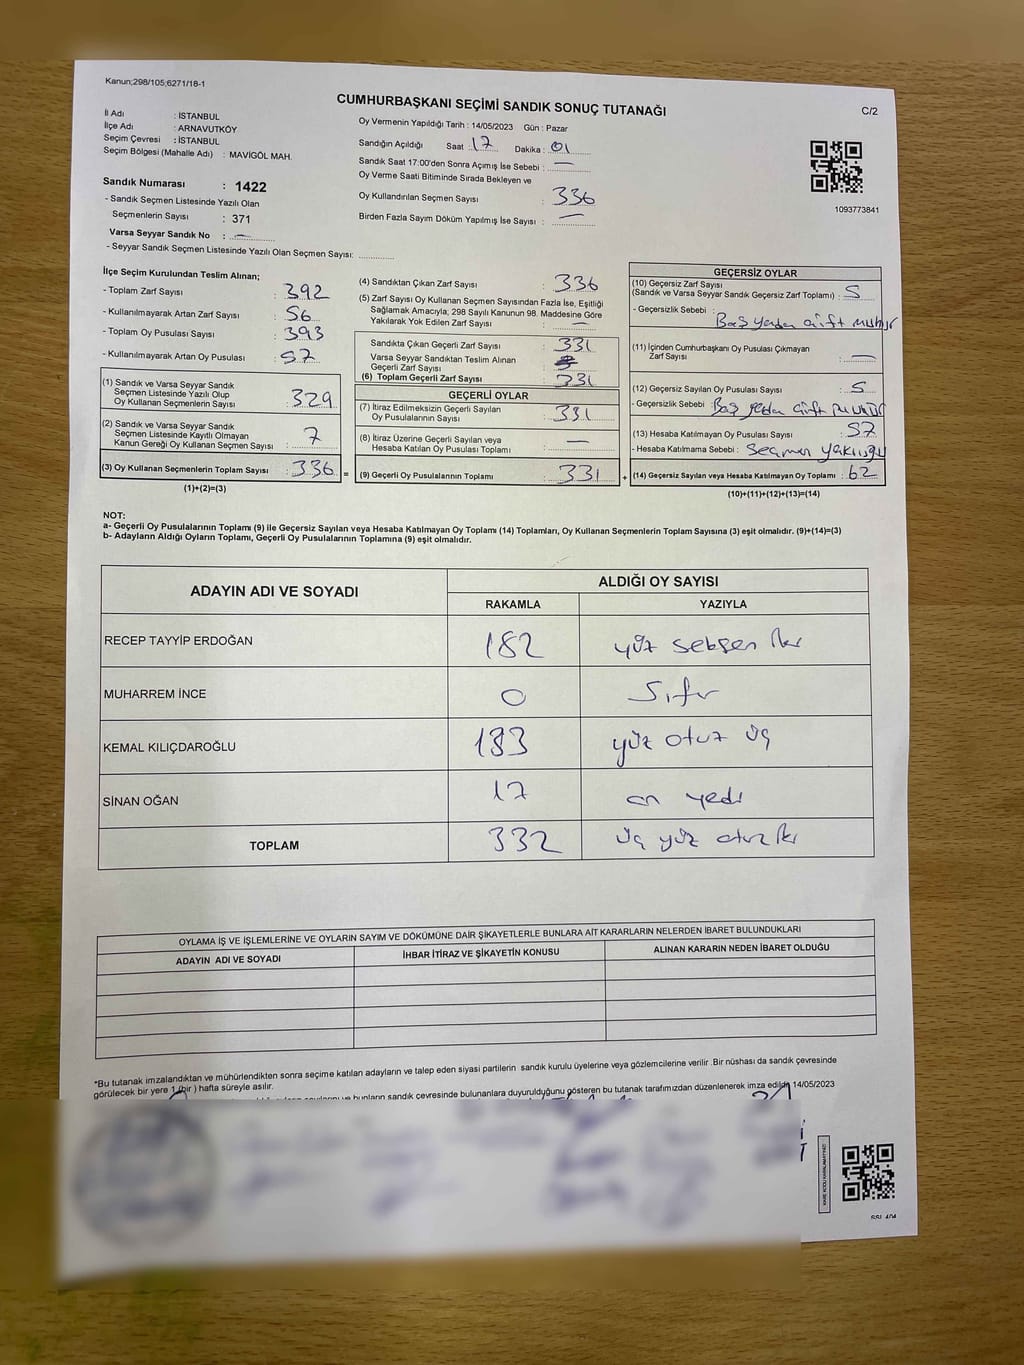 Kanun;298/105;6271/18-1
CUMHURBAŞKANI SEÇİMİ SANDIK SONUÇ TUTANAĞI
C/2
İl Adı : İSTANBUL
İlçe Adı : ARNAVUTKÖY
Seçim Çevresi : İSTANBUL
Seçim Bölgesi (Mahalle Adı) : MAVİGÖL MAH.
Sandık Numarası : 1422
- Sandık Seçmen Listesinde Yazılı Olan
Seçmenlerin Sayısı : 371
Varsa Seyyar Sandık No : —
- Seyyar Sandık Seçmen Listesinde Yazılı Olan Seçmen Sayısı:
Oy Vermenin Yapıldığı Tarih : 14/05/2023 Gün : Pazar
Sandığın Açıldığı Saat : 17 Dakika : 01
Sandık Saat 17:00'den Sonra Açımış İse Sebebi : —
Oy Verme Saati Bitiminde Sırada Bekleyen ve
Oy Kullandırılan Seçmen Sayısı : 336
Birden Fazla Sayım Döküm Yapılmış İse Sayısı : —
1093773841
İlçe Seçim Kurulundan Teslim Alınan;
- Toplam Zarf Sayısı : 392
- Kullanılmayarak Artan Zarf Sayısı : 56
- Toplam Oy Pusulası Sayısı : 393
- Kullanılmayarak Artan Oy Pusulası : 57
(1) Sandık ve Varsa Seyyar Sandık
Seçmen Listesinde Yazılı Olup
Oy Kullanan Seçmenlerin Sayısı : 329
(2) Sandık ve Varsa Seyyar Sandık
Seçmen Listesinde Kayıtlı Olmayan
Kanun Gereği Oy Kullanan Seçmen Sayısı : 7
(3) Oy Kullanan Seçmenlerin Toplam Sayısı : 336 =
(1)+(2)=(3)
(4) Sandıktan Çıkan Zarf Sayısı : 336
(5) Zarf Sayısı Oy Kullanan Seçmen Sayısından Fazla İse, Eşitliği
Sağlamak Amacıyla; 298 Sayılı Kanunun 98. Maddesine Göre
Yakılarak Yok Edilen Zarf Sayısı : —
Sandıkta Çıkan Geçerli Zarf Sayısı : 331
Varsa Seyyar Sandıktan Teslim Alınan
Geçerli Zarf Sayısı :
(6) Toplam Geçerli Zarf Sayısı : 331
GEÇERLİ OYLAR
(7) İtiraz Edilmeksizin Geçerli Sayılan
Oy Pusulalarının Sayısı : 331
(8) İtiraz Üzerine Geçerli Sayılan veya
Hesaba Katılan Oy Pusulası Toplamı : —
(9) Geçerli Oy Pusulalarının Toplamı : 331 +
GEÇERSİZ OYLAR
(10) Geçersiz Zarf Sayısı
(Sandık ve Varsa Seyyar Sandık Geçersiz Zarf Toplamı) : 5
- Geçersizlik Sebebi : Baş yerden çift mühür
(11) İçinden Cumhurbaşkanı Oy Pusulası Çıkmayan
Zarf Sayısı : —
(12) Geçersiz Sayılan Oy Pusulası Sayısı : 5
- Geçersizlik Sebebi : Baş yerden çift mühür
(13) Hesaba Katılmayan Oy Pusulası Sayısı : 57
- Hesaba Katılmama Sebebi : Seçmen yokluğu
(14) Geçersiz Sayılan veya Hesaba Katılmayan Oy Toplamı : 62
(10)+(11)+(12)+(13)=(14)
NOT:
a- Geçerli Oy Pusulalarının Toplamı (9) ile Geçersiz Sayılan veya Hesaba Katılmayan Oy Toplamı (14) Toplamları, Oy Kullanan Seçmenlerin Toplam Sayısına (3) eşit olmalıdır. (9)+(14)=(3)
b- Adayların Aldığı Oyların Toplamı, Geçerli Oy Pusulalarının Toplamına (9) eşit olmalıdır.
ADAYIN ADI VE SOYADI
ALDIĞI OY SAYISI
RAKAMLA YAZIYLA
RECEP TAYYİP ERDOĞAN 182 yüz seksen iki
MUHARREM İNCE 0 Sıfır
KEMAL KILIÇDAROĞLU 133 yüz otuz üç
SİNAN OĞAN 17 on yedi
TOPLAM 332 üç yüz otuz iki
OYLAMA İŞ VE İŞLEMLERİNE VE OYLARIN SAYIM VE DÖKÜMÜNE DAİR ŞİKAYETLERLE BUNLARA AİT KARARLARIN NELERDEN İBARET BULUNDUKLARI
ADAYIN ADI VE SOYADI İHBAR İTİRAZ VE ŞİKAYETİN KONUSU ALINAN KARARIN NEDEN İBARET OLDUĞU
*Bu tutanak imzalandıktan ve mühürlendikten sonra seçime katılan adayların ve talep eden siyasi partilerin sandık kurulu üyelerine veya gözlemcilerine verilir .Bir nüshası da sandık çevresinde
görülecek bir yere 1 (bir ) hafta süreyle asılır.
bunların sandık çevresinde bulunanlara duyurulduğunu gösteren bu tutanak tarafımızdan düzenlenerek imza edildi. 14/05/2023